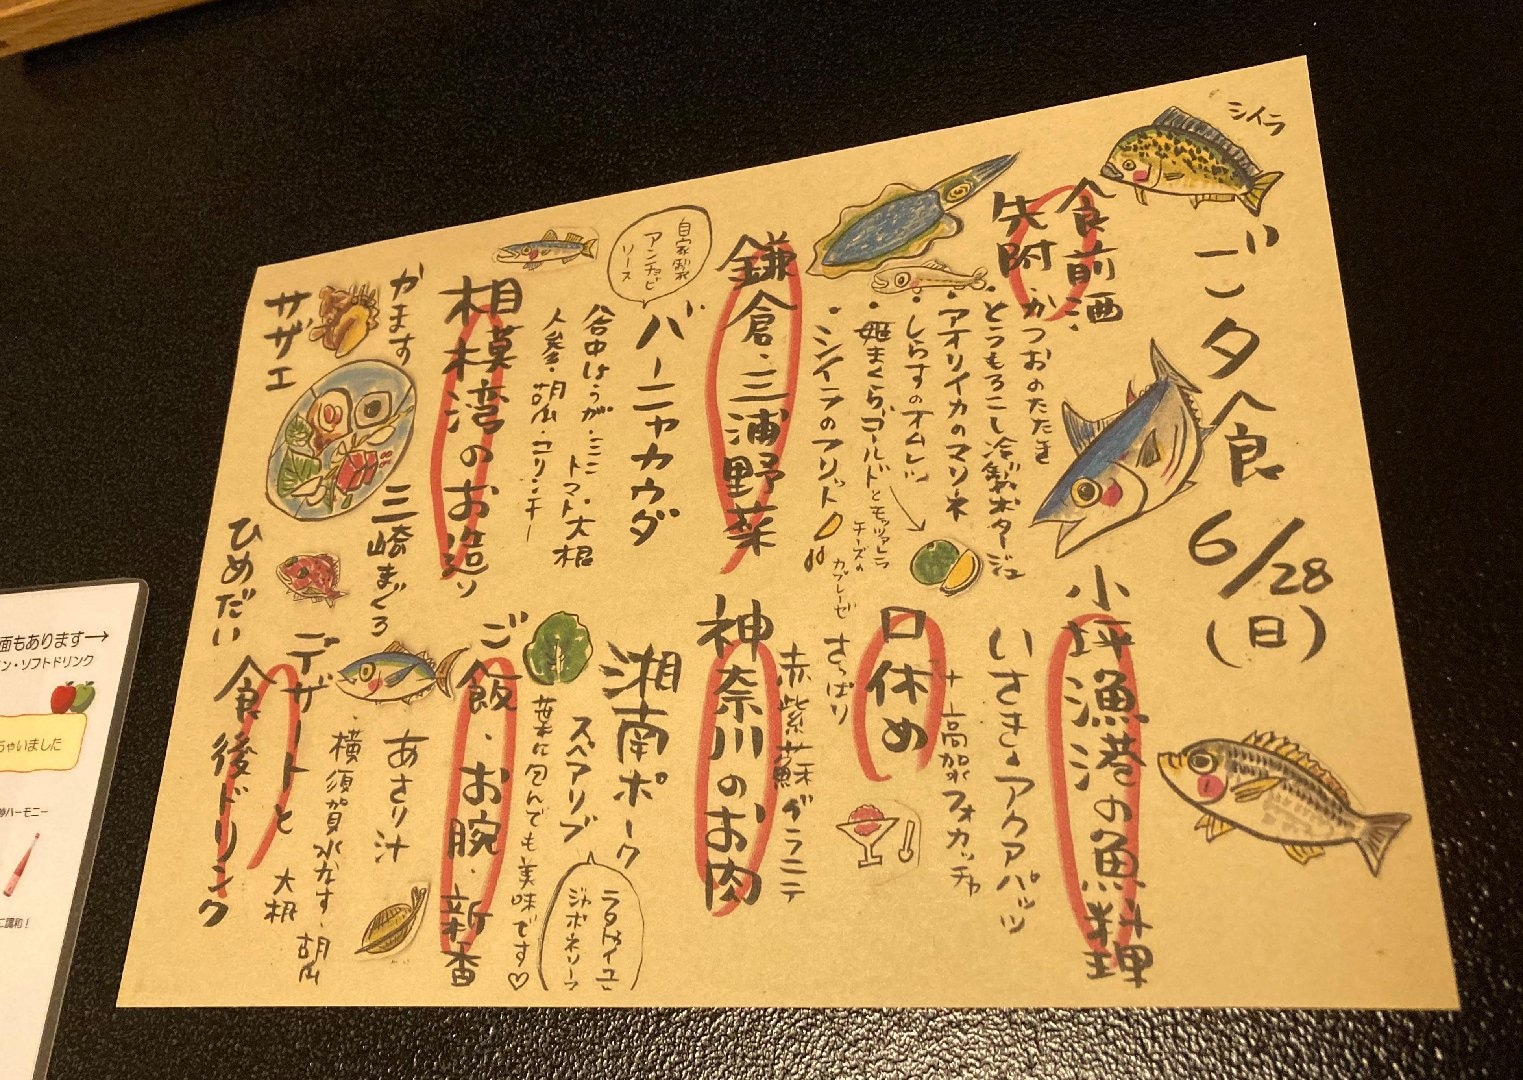 シイラ
ご夕食 6/28(日)
食前酒
先附
・かつおのたたき
・とうもろこし冷製ポタージュ
・アオリイカのマリネ
・しらすのオムレツ
・姫まくらゴールドとモッツァレラ
チーズの
カプレーゼ
・シイラのフリット
鎌倉・三浦野菜
バーニャカウダ
自家製
アンチョビ
ソース
トマト・大根
人参・胡瓜・コリンキー
相模湾のお造り
かます
三崎まぐろ
サザエ
ひめだい
小坪漁港の魚料理
いさきのアクアパッツァ
+ 高加水フォカッチャ
口休め
さっぱり
赤紫蘇グラニテ
神奈川のお肉
湘南ポーク
スペアリブ
ラタトゥイユ
ジャポネソース
葉に包んでも美味です♡
ご飯・お腕・新香
あさり汁
・横須賀水なす・胡瓜
大根
デザートと
食後ドリンク
面もあります→
ン・ソフトドリンク
ちゃいました
ハーモニー
に調和!